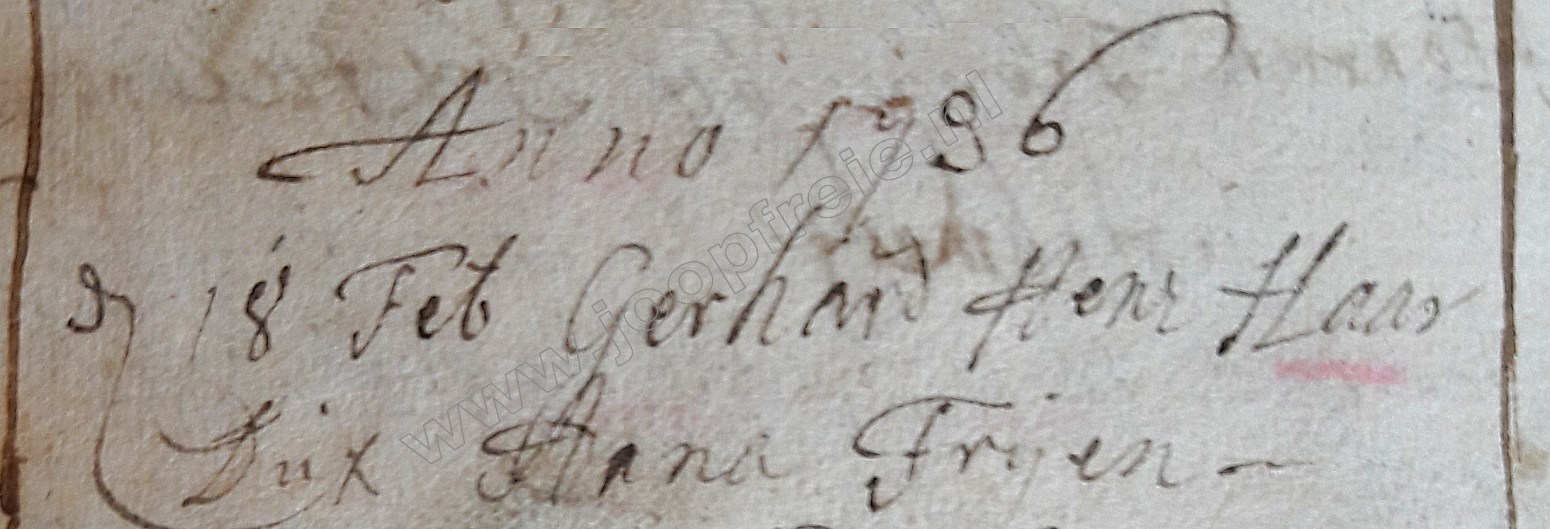 Anno 1786
d 18 Feb Gerhard Henr Haar
Dux Anna Frÿen
www.joopfreie.nl